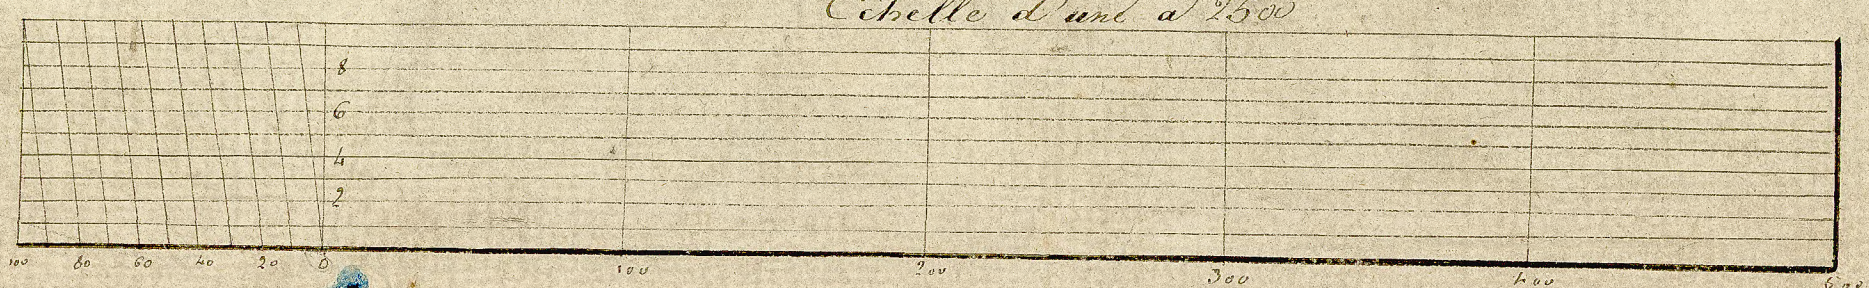 Echelle d'une a 2500
8
6
4
2
100 80 60 40 20 0 100 200 300 400 500